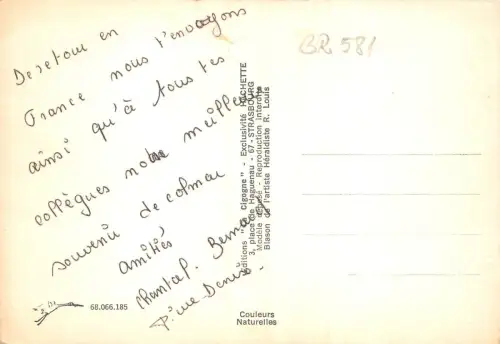 De retour en
France nous t'envoyons
ainsi qu'à tous tes
collègues notre meilleur
souvenir de colmar
amitiés
chantal. Bernard
P.
BR 581
Editions "La Cigogne" - Exclusivité HACHETTE
3, place de Haguenau - 67-STRASBOURG
Modèle déposé - Reproduction interdite
Blason de l'artiste Héraldiste R. Louis
68.066.185
Couleurs
Naturelles